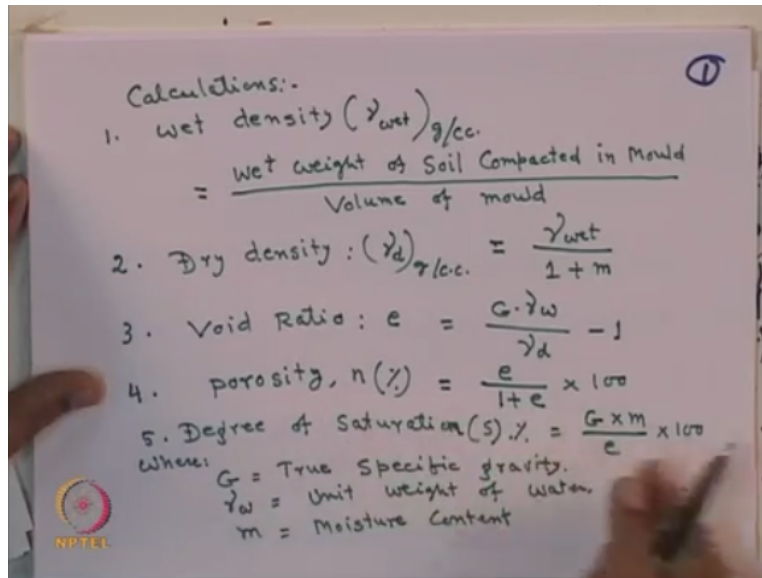 ①
Calculations:-
1. Wet density (γwet) g/cc.
= Wet weight of Soil Compacted in Mould
Volume of mould
2. Dry density : (γd) g/c.c. = γwet / 1 + m
3. Void Ratio : e = G.γw / γd - 1
4. porosity, n(%) = e / 1+e × 100
5. Degree of Saturation (S) % = G × m / e × 100
Where:
G = True Specific gravity.
γw = Unit weight of water.
m = Moisture Content
NPTEL